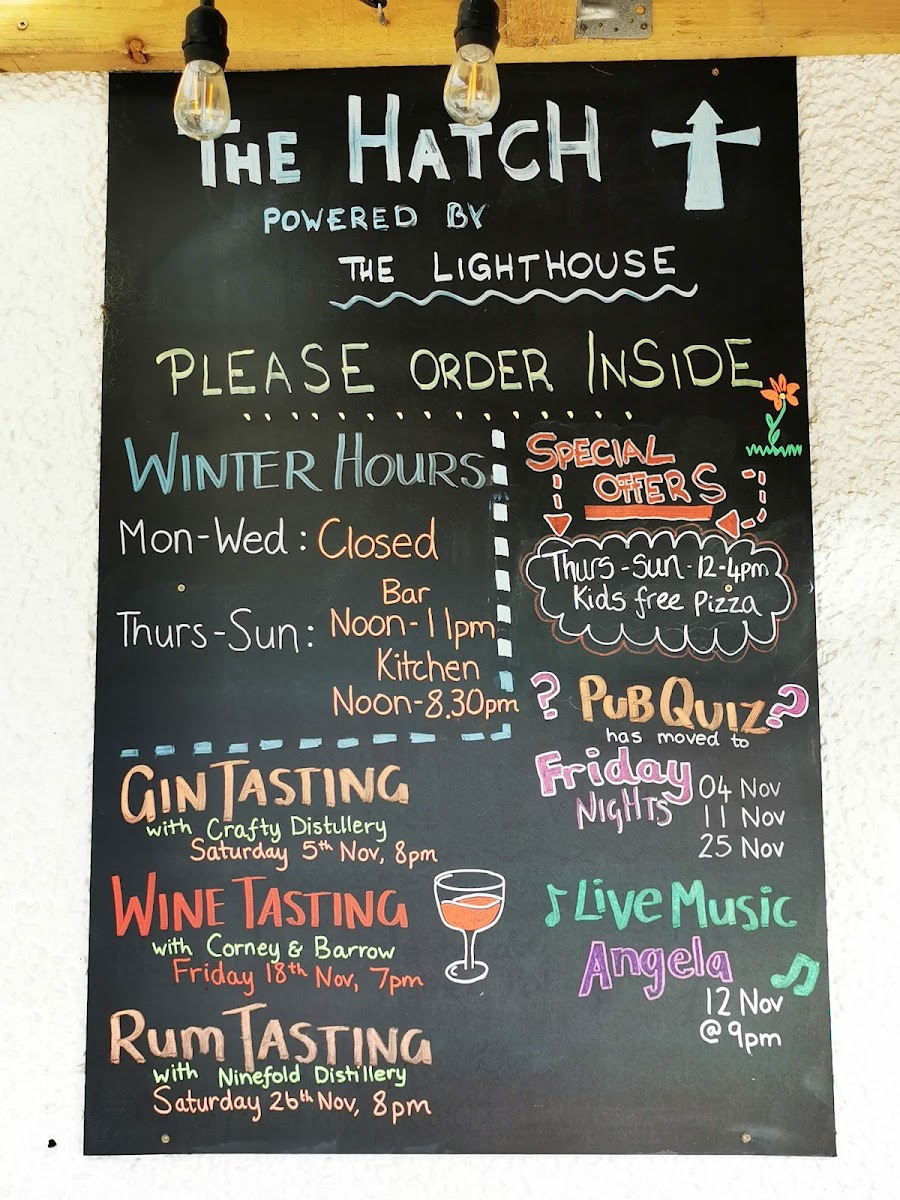 THE HATCH
POWERED BY
THE LIGHTHOUSE
PLEASE ORDER INSIDE
WINTER HOURS
Mon-Wed: Closed
Bar
Thurs-Sun: Noon-11pm
Kitchen
Noon-8.30pm
SPECIAL
OFFERS
Thurs-Sun-12-4pm
Kids free Pizza
? PUB QUIZ ?
has moved to
Friday
NIGHTS
04 Nov
11 Nov
25 Nov
GIN TASTING
with Crafty Distillery
Saturday 5th Nov, 8pm
WINE TASTING
with Corney & Barrow
Friday 18th Nov, 7pm
RUM TASTING
with Ninefold Distillery
Saturday 26th Nov, 8pm
Live Music
Angela
12 Nov
@ 9pm